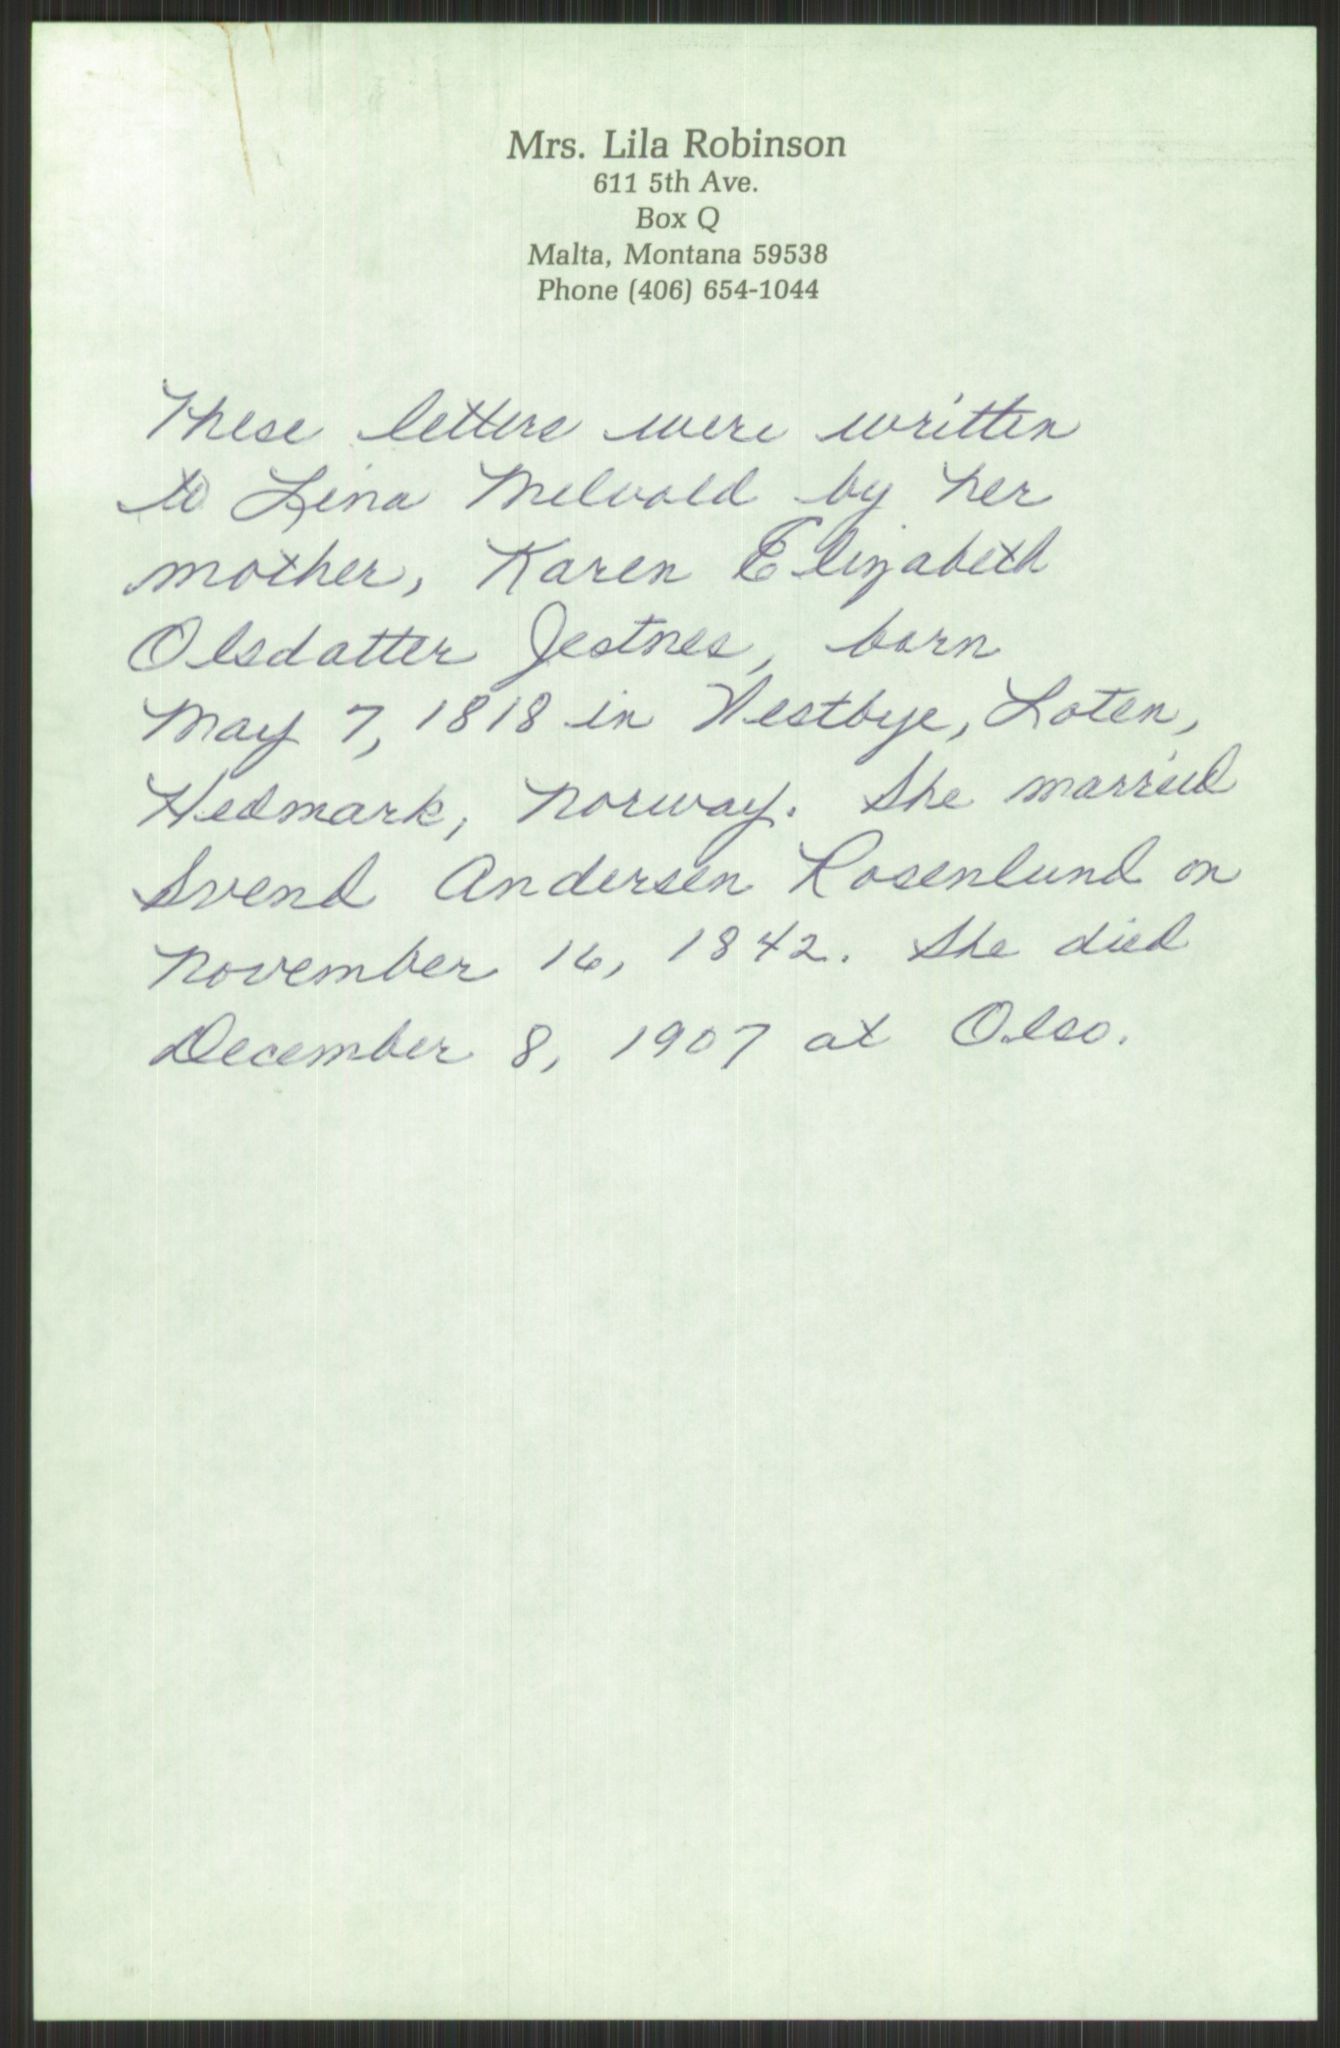 Mrs. Lila Robinson
611 5th Ave.
Box Q
Malta, Montana 59538
Phone (406) 654-1044
These letters were written
to Lena Melvold by her
mother, Karen Elizabeth
Olsdatter Jestnes, born
May 7, 1818 in Westbye, Loten,
Hedmark, Norway. She married
Svend Andersen Rosenlund on
November 16, 1842. She died
December 8, 1907 at Olso.